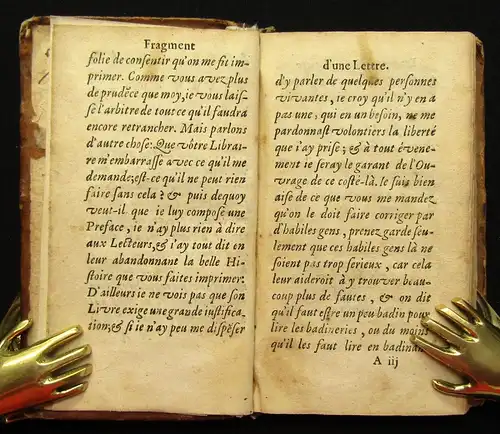 Fragment
folie de consentir qu'on me fît im-
primer. Comme vous avez plus
de prudẽce que moy, ie vous lais-
se l'arbitre de tout ce qu'il faudra
encore retrancher. Mais parlons
d'autre chose: Que vôtre Librai-
re m'embarrasse avec ce qu'il me
demande; est-ce qu'il ne peut rien
faire sans cela? & puis dequoy
veut-il que ie luy compose une
Preface, ie n'ay plus rien à dire
aux Lecteurs, & i'ay tout dit en
leur abandonnant la belle Hi-
stoire que vous faites imprimer.
D'ailleurs ie ne vois pas que son
Livre exige une grande iustifica-
tion; & si ie n'ay peu me dispẽser
d'une Lettre.
d'y parler de quelques personnes
vivantes, ie croy qu'il n'y en a
pas une, qui en un besoin, ne me
pardonnast volontiers la liberté
que i'ay prise; & à tout évene-
ment ie seray le garant de l'Ou-
vrage de ce costé-là. Ie suis bien
aise de ce que vous me mandez
qu'on le doit faire corriger par
d'habiles gens, prenez garde seu-
lement que ces habiles gens là ne
soient pas trop serieux, car cela
leur aideroit à y trouver beau-
coup plus de fautes, & on dit
qu'il faut estre un peu badin pour
lire les badineries, ou du moins
qu'il les faut lire en badinant
A iij